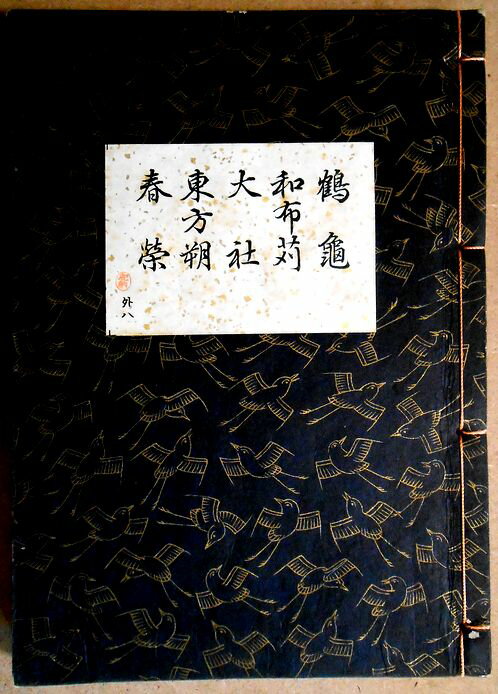 鶴龜
和布苅
大社
東方朔
春榮
外八